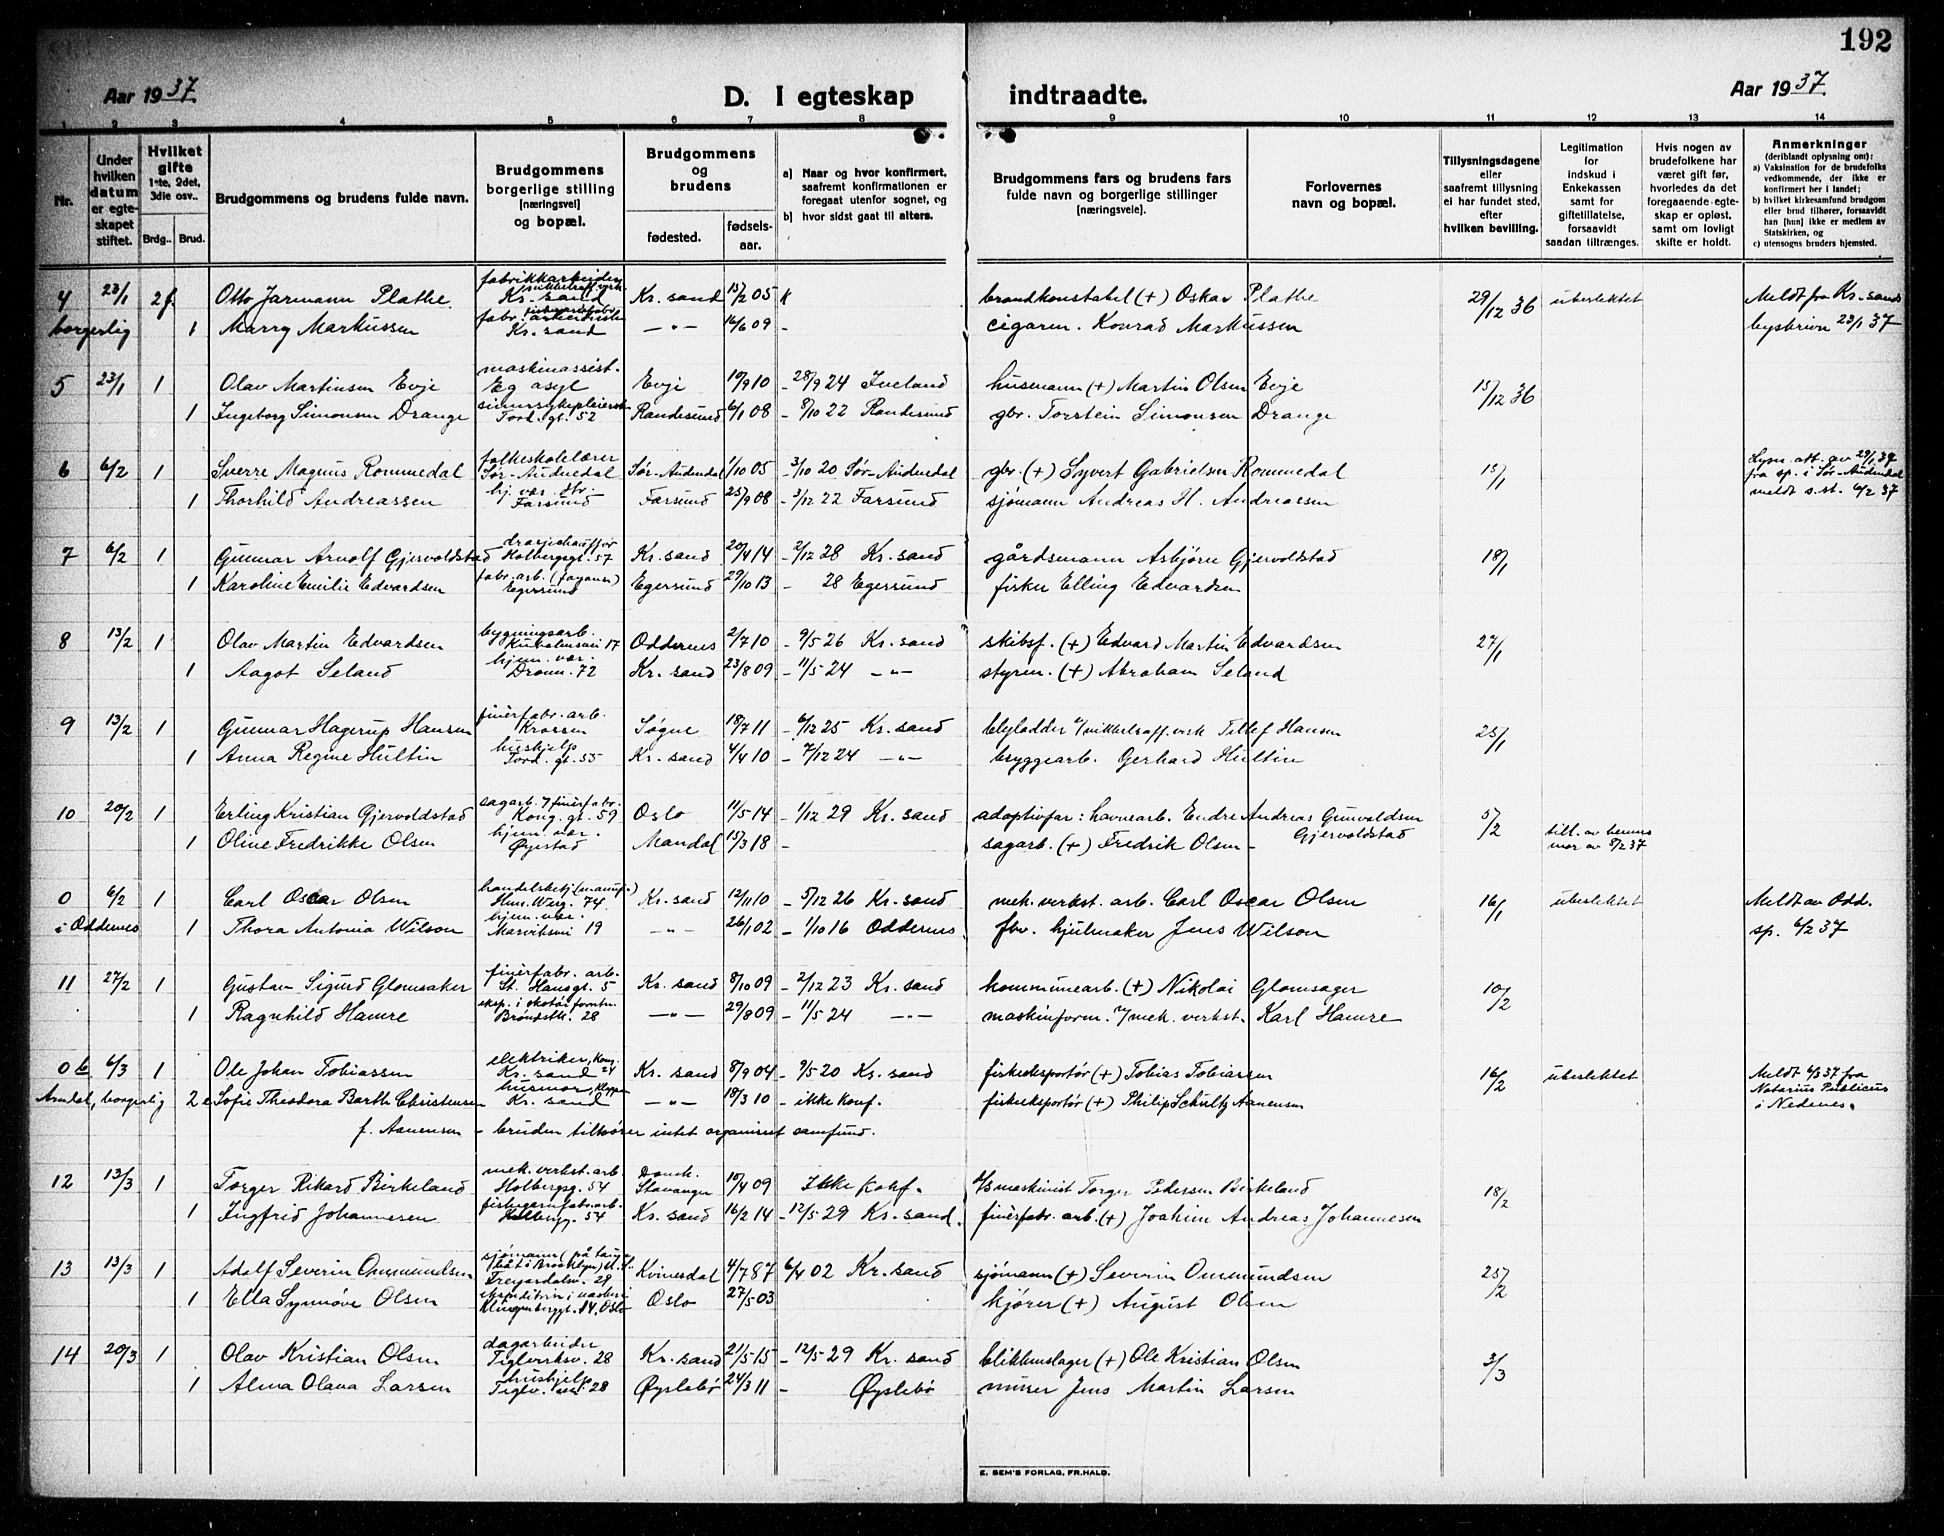 192
Aar 1937.
D. I egteskap indtraadte.
Aar 1937.
1 2 3 4 5 6 7 8 9 10 11 12 13 14
Nr.
Under hvilken datum er egteskapet stiftet.
Hvilket gifte 1ste, 2det, 3die osv..
Brdg.. Brud.
Brudgommens og brudens fulde navn.
Brudgommens borgerlige stilling [næringsvei] og bopæl.
Brudgommens og brudens
fødested. fødsels-aar.
a) Naar og hvor konfirmert, saafremt konfirmationen er foregaat utenfor sognet, og
b) hvor sidst gaat til alters.
Brudgommens fars og brudens fars fulde navn og borgerlige stillinger [næringsveie].
Forlovernes navn og bopæl.
Tillysningsdagene eller saafremt tillysning ei har fundet sted, efter hvilken bevilling.
Legitimation for indskud i Enkekassen samt for giftetillatelse, forsaavidt saadan tiltrænges.
Hvis nogen av brudefolkene har været gift før, hvorledes da det foregaaende egteskap er opløst, samt om lovligt skifte er holdt.
Anmerkninger
(deriblandt oplysning om):
a) Vaksination for de brudefolks vedkommende, der ikke er konfirmert her i landet;
b) hvilket kirkesamfund brudgom eller brud tilhører, forsaavidt han [hun] ikke er medlem av Statskirken, og
c) utensogns bruders hjemsted.
4 23/1 2 f. Otto Jarmann Plathe fabrikkarbeider Kr. sand Kr. sand 15/2 05 K brandkonstabel (+) Oskar Plathe 29/12 36 uberlektet Meldt fra Kr. sand
borgerlig 1 Marry Markussen Kr. sand —"— 16/6 09 - cigarm. Konrad Markussen byskriver 23/1 37
5 23/1 1 Olav Martinsen Evje maskinassist. Eg asyl Evje 10/9 10 - 28/9 24 Iveland husmann (+) Martin Olsen Evje 15/12 36
1 Ingeborg Simonsen Drange sinnssykepleierske Tord. gt. 52 Randesund 6/1 08 - 8/10 22 Randesund gbr. Torstein Simonsen Drange
6 6/2 1 Sverre Magnus Rommedal folkeskolelærer Sør-Audnedal Sør-Audnedal 1/10 05 - 3/10 20 Sør-Audnedal gbr. (+) Syvert Gabrielsen Rommedal 15/1 Lysn. att. av 29/1 37
fra sp. i Sør-Audnedal
1 Thorhild Andreassen hj. vær. Str. Farsund Farsund 25/9 08 - 3/12 22 Farsund sjømann Andreas H. Andreassen meldt s. st. 6/2 37
7 6/2 1 Gunnar Arnolf Gjervoldstad drosjechauffør Holbergsgt. 57 Kr. sand 20/4 14 - 2/12 28 Kr. sand gårdsmann Asbjørn Gjervoldstad 18/1
1 Karoline Emilie Edvardsen fabr. arb. (fayanse) Egersund Egersund 29/10 13 - 28 Egersund fisker Elling Edvardsen
8 13/2 1 Olav Martin Edvardsen bygningsarb. Kuholmsvei 17 Oddernes 2/7 10 - 9/5 26 Kr. sand skibsf. (+) Edvard Martin Edvardsen 27/1
1 Aagot Seland hjem. vær. Dronn. 72 Kr. sand 23/8 09 - 11/5 24 —"— styrm. (+) Abraham Seland
9 13/2 1 Gunnar Hagerup Hansen finérfabr. arb. Krossen Søgne 18/7 11 - 6/12 25 Kr. sand blylodder v/nikkelraff. verk Tellef Hansen 25/1
1 Anna Regine Hultin hushjelp Tord. gt. 55 Kr. sand 4/4 10 - 7/12 24 —"— bryggearb. Gerhard Hultin
10 20/2 1 Erling Kristian Gjervoldstad sagarb. v/finérfabr. Kong. gt. 59 Oslo 11/5 14 - 1/12 29 Kr. sand adoptivfar: havnearb. Endre Andreas Gunvaldsen Gjervoldstad 5/2
1 Oline Fredrikke Olsen hjem. vær. Øyestad Mandal 15/3 18 - sagarb. (+) Fredrik Olsen - till. av hennes mor av 5/2 37
0 6/2 1 Carl Oscar Olsen handelsbetj. (manuf.) Hen. Werg. 74 Kr. sand 12/11 10 - 5/12 26 Kr. sand mek. verkst. arb. Carl Oscar Olsen 16/1 uberlektet Meldt av Odd.
i Oddernes 1 Thora Antonia Wilson hjem. vær. Marviksvei 19 —"— 26/1 02 - 1/10 16 Oddernes. fbv. hjulmaker Jens Wilson sp. 6/2 37
11 27/2 1 Gustav Sigurd Glomsaker finérfabr. arb. St. Hansgt. 5 Kr. sand 8/10 09 - 2/12 23 Kr. sand kommunearb. (+) Nikolai Glomsager 10/2
1 Ragnhild Hamre eksp. i skotøiforretn. Brøndstk. 28 —"— 29/8 09 - 11/5 24 —"— maskinform. v/mek. verkst. Karl Hamre
0 b 6/3 1 Ole Johan Tobiassen elektriker, Kong. 24 Kr. sand Kr. sand 8/9 04 - 9/5 20 Kr. sand fiskeeksportør (+) Tobias Tobiassen 16/2 uberlektet Meldt 6/3 37 fra
Arndal, borgerlig 2 e Sofie Theodora Barth Christensen husmor, Kloppen Kr. sand —"— 10/3 10 - ikke konf. fiskeeksportør (+) Philip Schultz Aanensen Notarius Publicus
f. Aanensen - bruden tilhører intet organisert samfund. i Nedenes.
12 13/3 1 Torger Rikard Birkeland mek. verkst. arb. Holbergsg. 54 Domk. Stavanger 10/4 09 Ikke konf. maskinist Torger Pedersen Birkeland 18/2
1 Ingfrid Johannesen fiskegarnfabr. arb. Holbergg. 54 Kr. sand 16/2 14 - 12/5 29 Kr. sand. finérfabr. arb. (+) Joakim Andreas Johannesen
13 13/3 1 Adolf Severin Ommundsen sjømann (på Kvinesdal 4/7 87 6/4 02 Kr. sand sjømann (+) Severin Ommundsen 25/2
1 Ella Synnøve Olsen Klingenberggt. 14. Oslo Oslo 27/5 03 kjører (+) August Olsen
14 20/3 1 Olav Kristian Olsen dagarbeider Teglverksv. 28 Kr. sand 21/5 15 - 12/5 29 Kr. sand blikkenslager (+) Ole Kristian Olsen 3/3
1 Alma Olava Larsen hushjelp Teglv. vei 28 Øyslebø 24/3 11 - Øyslebø murer Jens Martin Larsen
E. SEM'S FORLAG, FR.HALD.